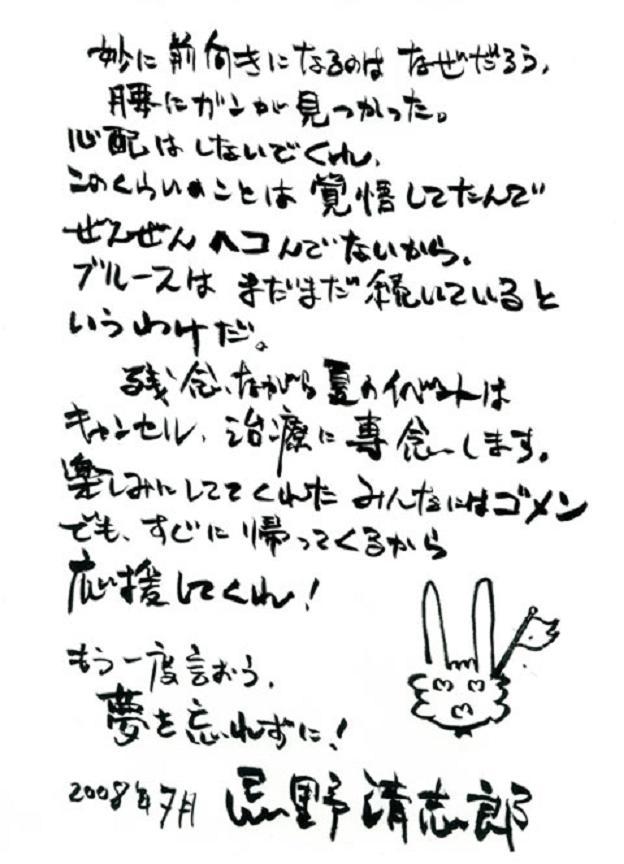 妙に前向きになるのはなぜだろう、
腰にガンが見つかった。
心配はしないでくれ、
このくらいのことは覚悟してたんで
ぜんぜんヘコんでないから、
ブルースはまだまだ続いていると
いうわけだ。
残念ながら夏のイベントは
キャンセル、治療に専念します。
楽しみにしててくれたみんなにはゴメン
でも、すぐに帰ってくるから
応援してくれ!
もう一度言おう、
夢を忘れずに!
2008年7月 忌野清志郎